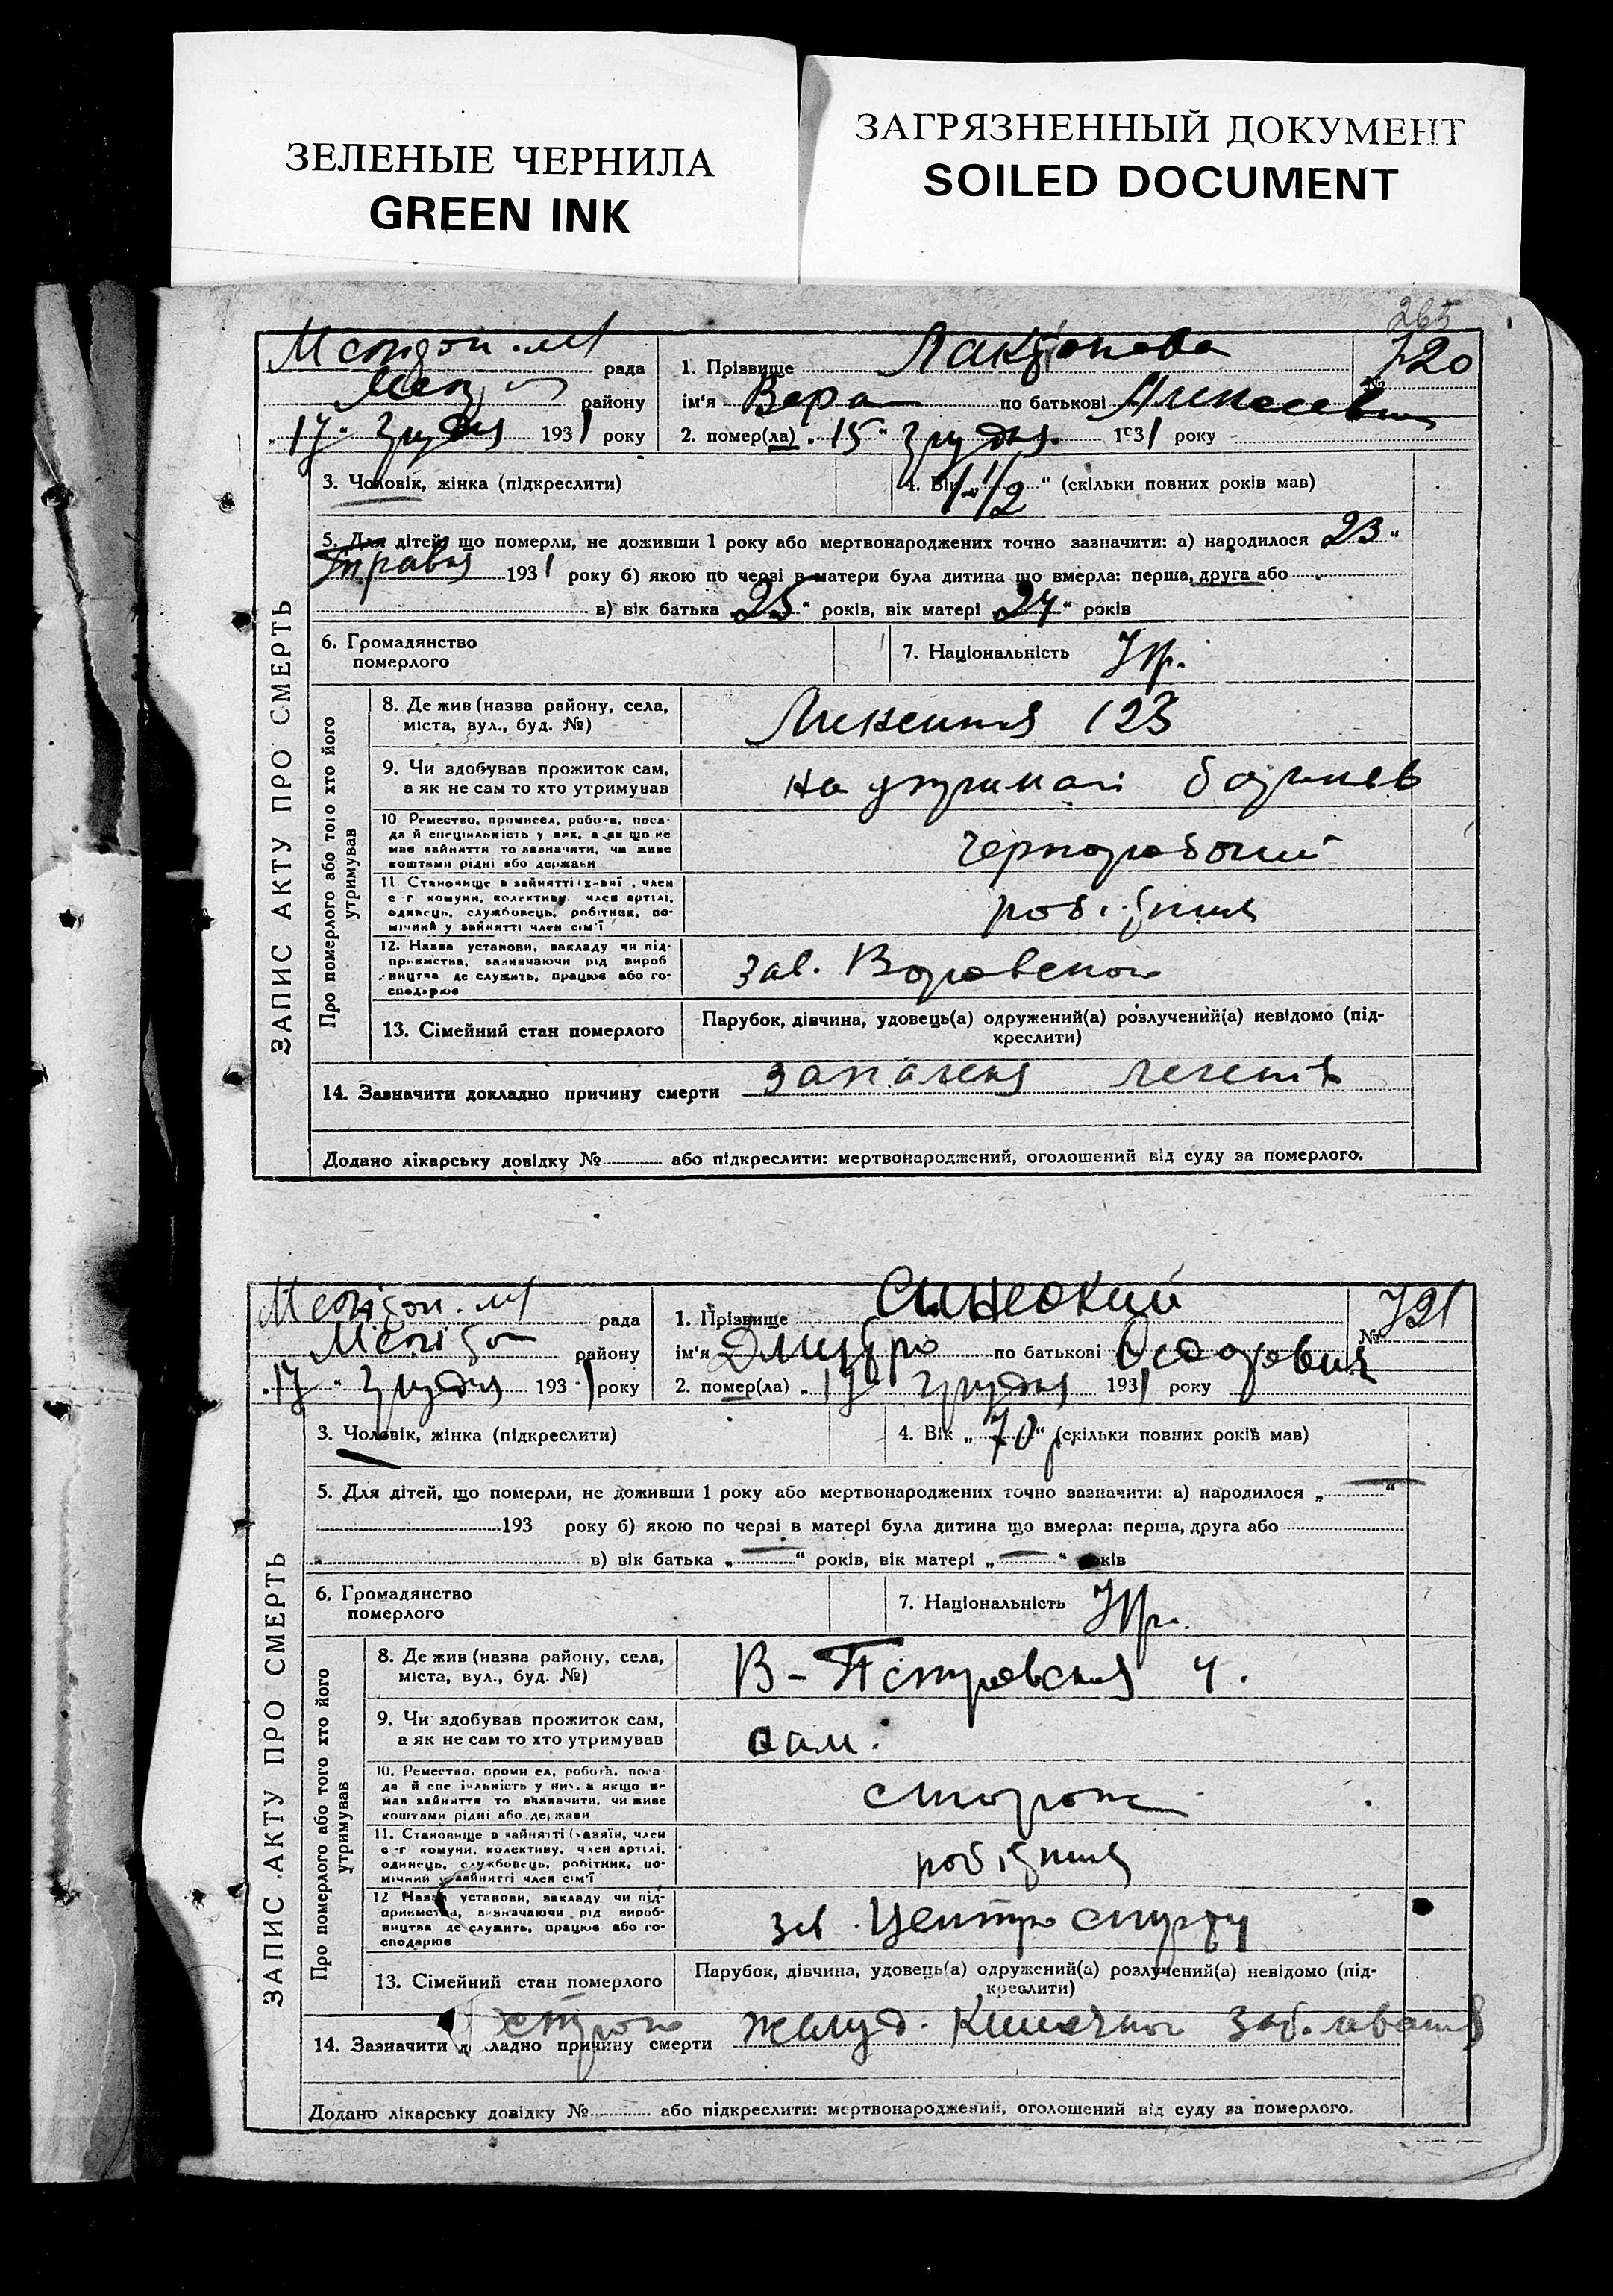 ЗЕЛЕНЫЕ ЧЕРНИЛА
GREEN INK
ЗАГРЯЗНЕННЫЙ ДОКУМЕНТ
SOILED DOCUMENT
265
рада
1. Прізвище Лакціонова
№ 720
району
ім'я Вера по батькові
„17“ Грудня 1931 року
2. помер(ла) „15“ грудня 1931 року
3. Чоловік, жінка (підкреслити)
4. Вік „1 1/2“ (скільки повних років мав)
5. Для дітей, що померли, не доживши 1 року або мертвонароджених точно зазначити: а) народилося „23“
Травня 1931 року б) якою по черзі в матери була дитина що вмерла: перша, друга або
в) вік батька „25“ років, вік матері „24“ років
6. Громадянство
померлого
7. Національність Укр.
ЗАПИС АКТУ ПРО СМЕРТЬ
Про померлого або того хто його
утримував
8. Де жив (назва району, села,
міста, вул., буд. №)
123
9. Чи здобував прожиток сам,
а як не сам то хто утримував
на утримані батьків
10 Ремество, промисел, робота, поса-
да й спеціяльність у них, а як що не
має зайняття то зазначити, чи живе
коштами рідні або держави
Чернорабочий
11 Становище в зайнятті (х-вяї , член
с-г комуни, колективу, член артілі,
одинець, службовець, робітник, по-
мічний у зайнятті член сім'ї
робітник
12. Назва установи, закладу чи під-
приємства, зазначаючи рід вироб
ництва де служить, працює або го-
сподарює
зав. Воровского
13. Сімейний стан померлого
Парубок, дівчина, удовець(а) одружений(а) розлучений(а) невідомо (під-
креслити)
14. Зазначити докладно причину смерти запаленя легенів
Додано лікарську довідку № або підкреслити: мертвонароджений, оголошений від суду за померлого.
рада
1. Прізвище
№ 721
району
ім'я Дмитро по батькові Федорович
„17“ Грудня 1931 року
2. помер(ла) „17“ грудня 1931 року
3. Чоловік, жінка (підкреслити)
4. Вік „70“ (скільки повних років мав)
5. Для дітей, що померли, не доживши 1 року або мертвонароджених точно зазначити: а) народилося „—“
193 року б) якою по черзі в матері була дитина що вмерла: перша, друга або
в) вік батька „—“ років, вік матері „—“ років
6. Громадянство
померлого
7. Національність Укр.
ЗАПИС АКТУ ПРО СМЕРТЬ
Про померлого або того хто його
утримував
8. Де жив (назва району, села,
міста, вул., буд. №)
В-Петровская 4.
9. Чи здобував прожиток сам,
а як не сам то хто утримував
сам.
10. Ремество, промисел, робота, поса-
да й спеціяльність у них, а якщо не
має зайняття то зазначити, чи живе
коштами рідні або держави
сторож
11. Становище в зайнятті (хазяїн, член
с-г комуни, колективу, член артілі,
одинець, службовець, робітник, по-
мічний у зайнятті член сім'ї
робітник
12 Назва установи, закладу чи під-
приємства, зазначаючи рід вироб-
ництва де служить, працює або го-
сподарює
зав. Центроспирту
13. Сімейний стан померлого
Парубок, дівчина, удовець(а) одружений(а) розлучений(а) невідомо (під-
креслити)
14. Зазначити докладно причину смерти Острое желуд. Кишечное заболевания
Додано лікарську довідку № або підкреслити: мертвонароджений, оголошений від суду за померлого.